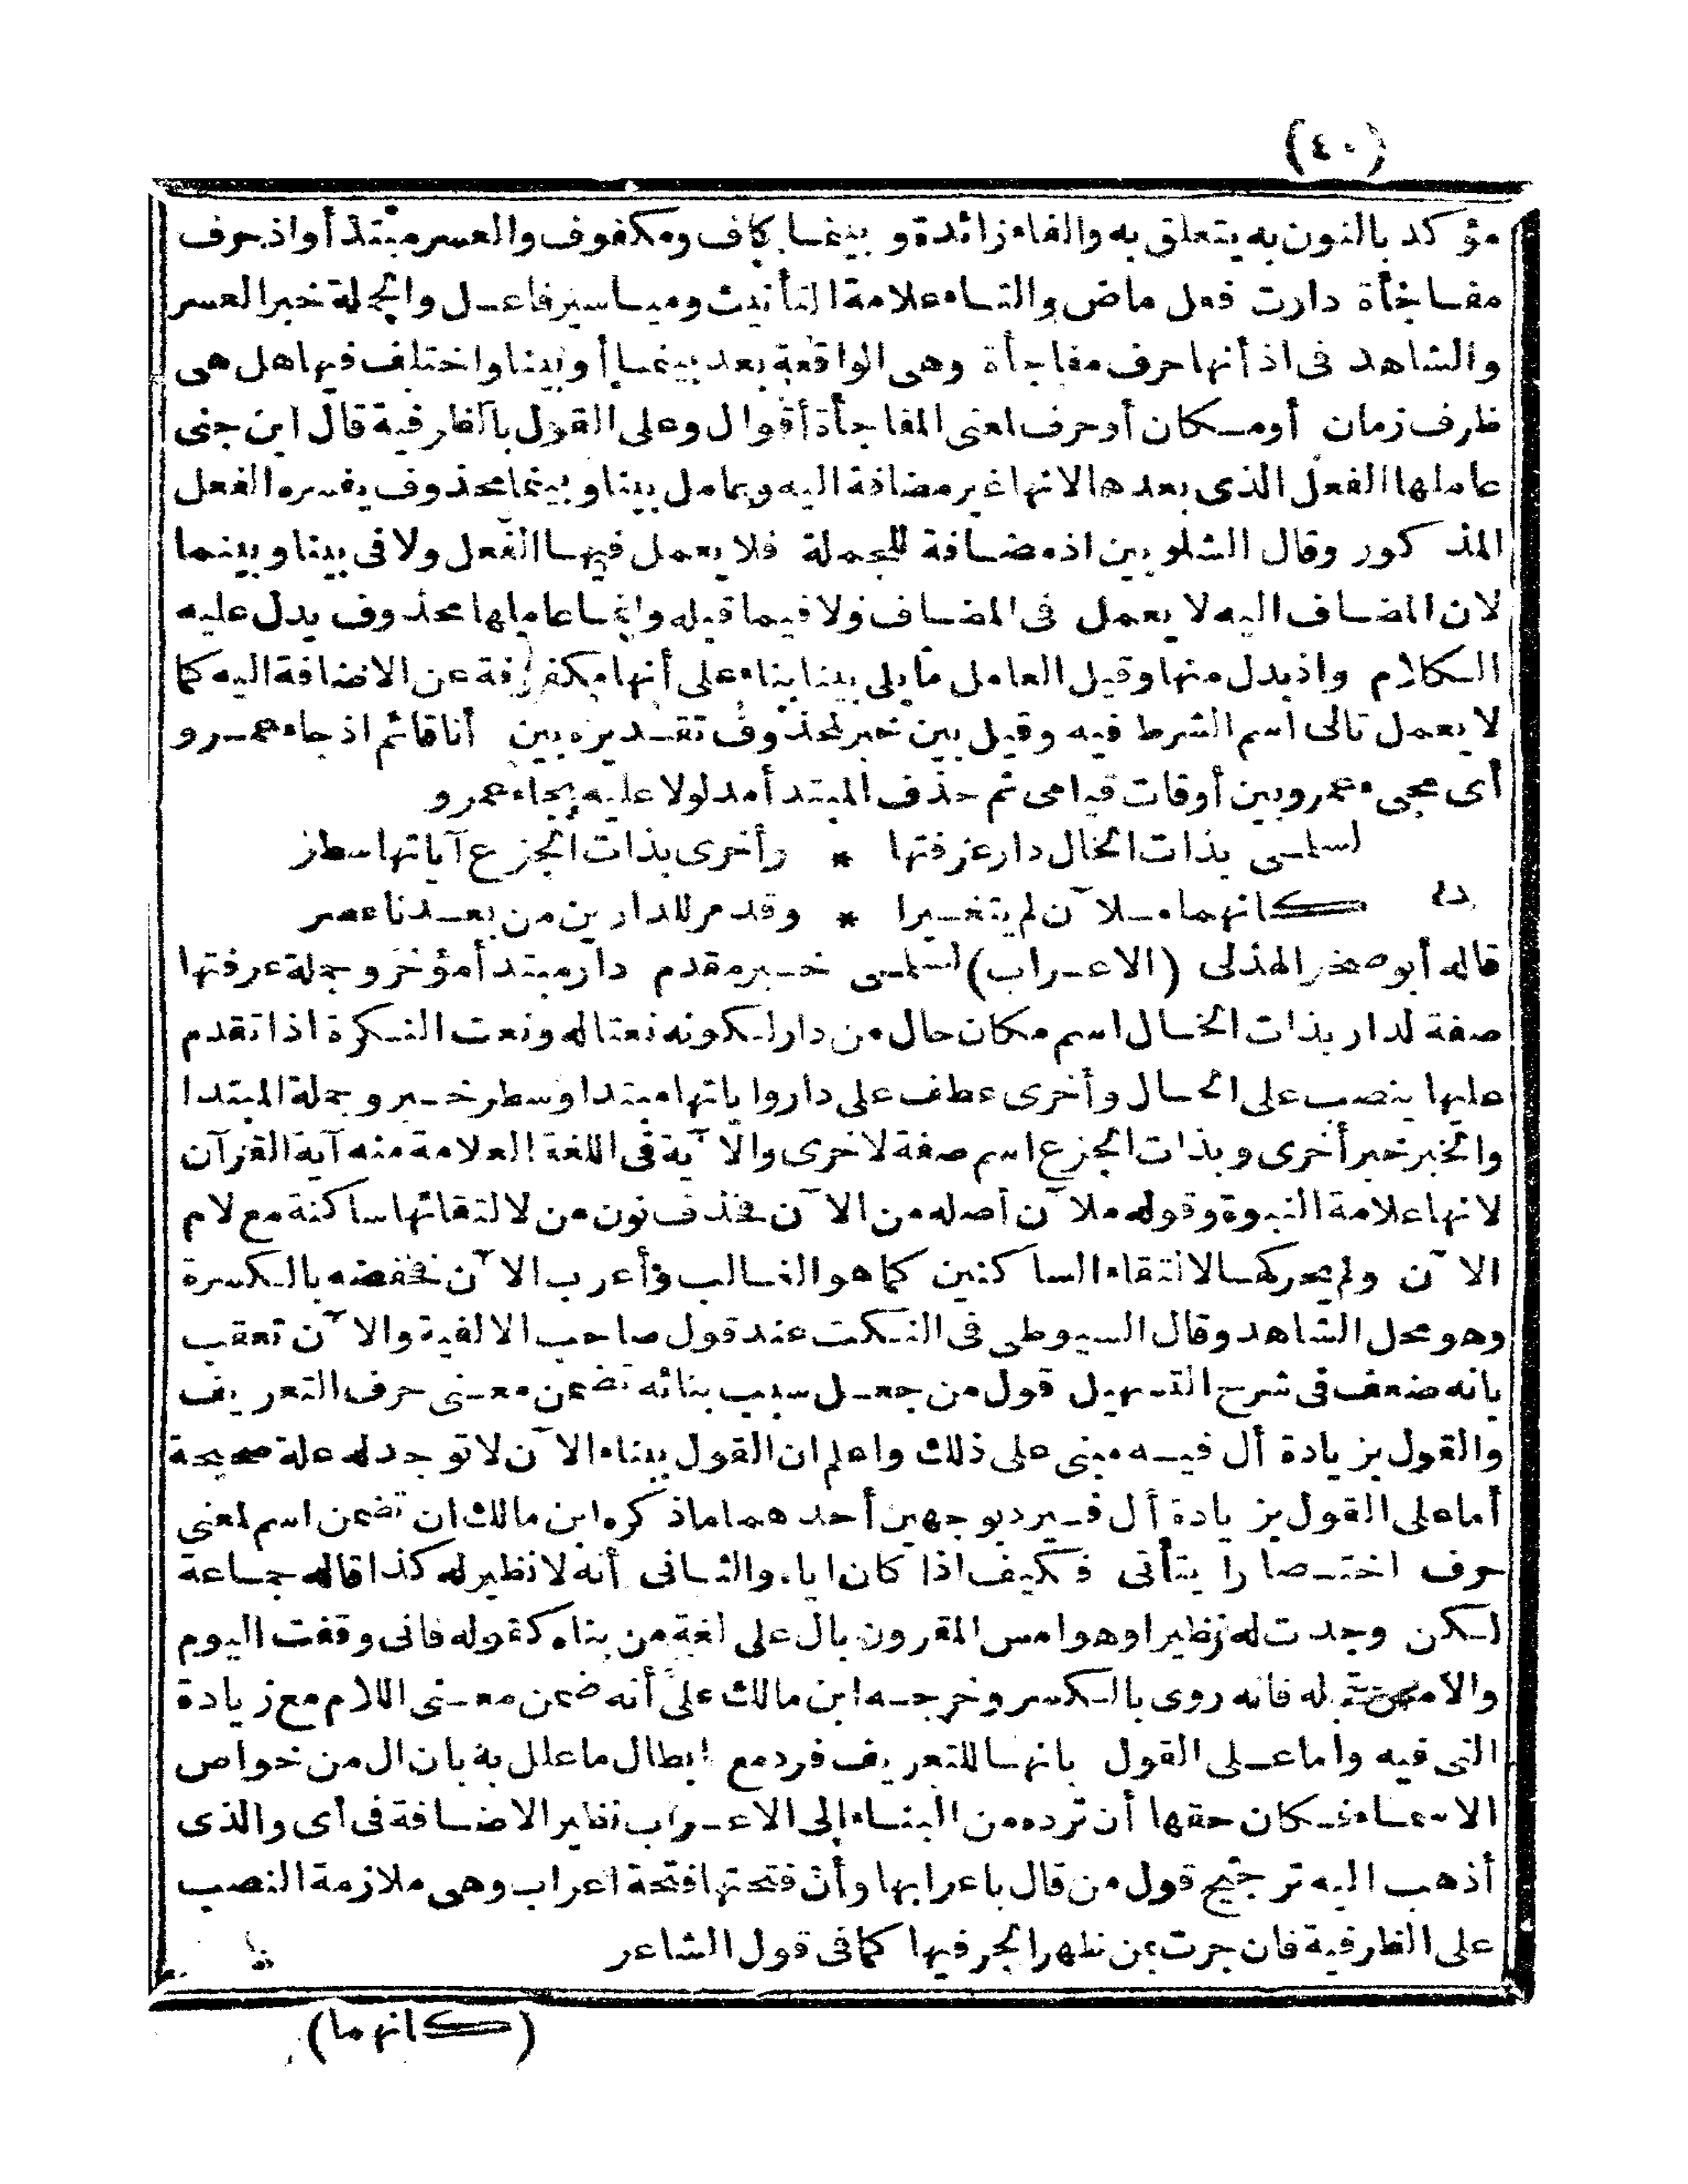 (٤٠)
مؤكد بالنون به يتعلق به والفاء زائدة و بينما كاف ومكفوف والعسر مبتدأ واذ حرف
مفاجأة دارت فعل ماض والتاء علامة التأنيث ومياسير فاعل والجملة خبر العسر
والشاهد فى اذ أنها حرف مفاجأة وهى الواقعة بعد بينما أو بينا واختلف فيها هل هى
ظرف زمان أو مكان أو حرف لمعنى المفاجأة أقوال وعلى القول بالظرفية قال ابن جنى
عاملها الفعل الذى بعدها لانها غير مضافة اليه وعامل بينا و بينما محذوف يفسره الفعل
المذكور وقال الشلوبين اذ مضافة للجملة فلا يعمل فيها الفعل ولا فى بينا و بينما
لان المضاف اليه لا يعمل فى المضاف ولا فيما قبله وانما عاملها محذوف يدل عليه
الكلام واذ بدل منها وقيل العامل ما يلى بينا بناء على أنها مكفوفة عن الاضافة اليه كما
لا يعمل تالى اسم الشرط فيه وقيل بين خبر لمحذوف تقديره بين أنا قائم اذ جاء عمرو
أى مجىء عمرو بين أوقات قيامى ثم حذف المبتدأ مدلولا عليه بجاء عمرو
لسلمى بذات الخال دار عرفتها * وأخرى بذات الجزع آياتها سطر
كانهما ملآن لم يتغيرا * وقد مر للدارين من بعدنا عصر
قاله أبو صخر الهذلى (الاعراب) لسلمى خبر مقدم دار مبتدأ مؤخر وجملة عرفتها
صفة لدار بذات الخال اسم مكان حال من دار لكونه نعتا له ونعت النكرة اذا تقدم
عليها ينصب على الحال وأخرى عطف على دار واياتها مبتدا وسطر خبر وجملة المبتدا
والخبر خبر أخرى و بذات الجزع اسم صفة لاخرى والآية فى اللغة العلامة منه آية القرآن
لانها علامة النبوة وقوله ملآن أصله من الآن فحذف نون من لالتقائها ساكنة مع لام
الآن ولم يحركها لالتقاء الساكنين كما هو الغالب وأعرب الآن فخفضه بالكسرة
وهو محل الشاهد وقال السيوطى فى النكت عند قول صاحب الالفية والآن تعقب
بانه ضعف فى شرح التسهيل قول من جعل سبب بنائه تضمن معنى حرف التعريف
والقول بزيادة أل فيه مبنى على ذلك واعلم ان القول ببناء الآن لا توجد له علة صحيحة
أما على القول بزيادة أل فيرد بوجهين أحدهما ما ذكره ابن مالك ان تضمن اسم لمعنى
حرف اختصارا يتأتى فكيف اذا كان اياه والثانى أنه لا نظير له كذا قاله جماعة
لكن وجدت له نظيرا وهو امس المقرون بال على لغة من بناه كقوله فانى وقفت اليوم
والامس قبله فانه روى بالكسر وخرجه ابن مالك على أنه ضمن معنى اللام مع زيادة
التى فيه وأما على القول بانها للتعريف فرد مع ابطال ما علل به بان ال من خواص
الاسماء فكان حقها أن ترده من البناء إلى الاعراب نظير الاضافة فى أى والذى
أذهب اليه ترجيح قول من قال باعرابها وأن فتحتها فتحة اعراب وهى ملازمة النصب
على الظرفية فان جرت بمن ظهر الجر فيها كما فى قول الشاعر
(كانهما)